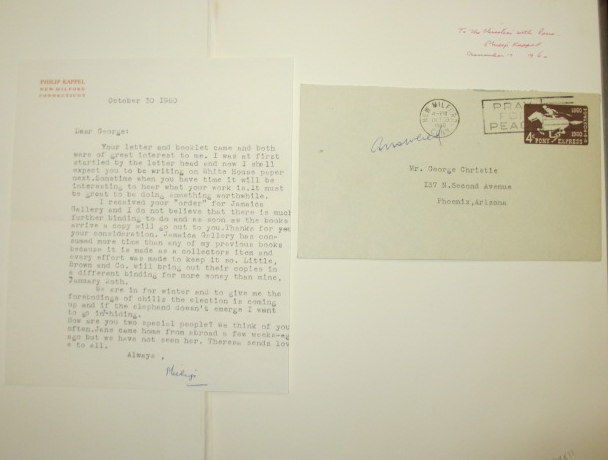 To the Christies with love
Philip Kappel
PHILIP KAPPEL
NEW MILFORD
CONNECTICUT
October 30 1960
Dear George:
Your letter and booklet came and both
were of great interest to me. I was at first
startled by the letter head and now I shall
expect you to be writing on White House paper
next.Sometime when you have time it will be
interesting to hear what your work is.It must
be great to be doing something worthwhile.
I received your "order" for Jamaica
Gallery and I do not believe that there is much
further binding to do and as soon as the books
arrive a copy will go out to you.Thanks for you
your consideration. Jamaica Gallery has con-
sumed more time than any of my previous books
because it is made as a collectors item and
every effort was made to keep it so. Little,
Brown and Co. will bring out their copies in
a different binding for more money than mine.
January 20th.
We are in for winter and to give me the
forebodings of chills the election is coming
up and if the elephand doesn't emerge I want
to go in hiding.
How are you two special people? We think of you
often.Jane came home from abroad a few weeks
ago but we have not seen her. Theresa sends lov
e to all.
Always ,
Philip
NEW MILFORD
CONN.
1960
PRAY
FOR
PEACE
1860
1960
4¢ PONY EXPRESS
Answered
Mr. George Christie
137 N.Second Avenue
Phoenix,Arizona